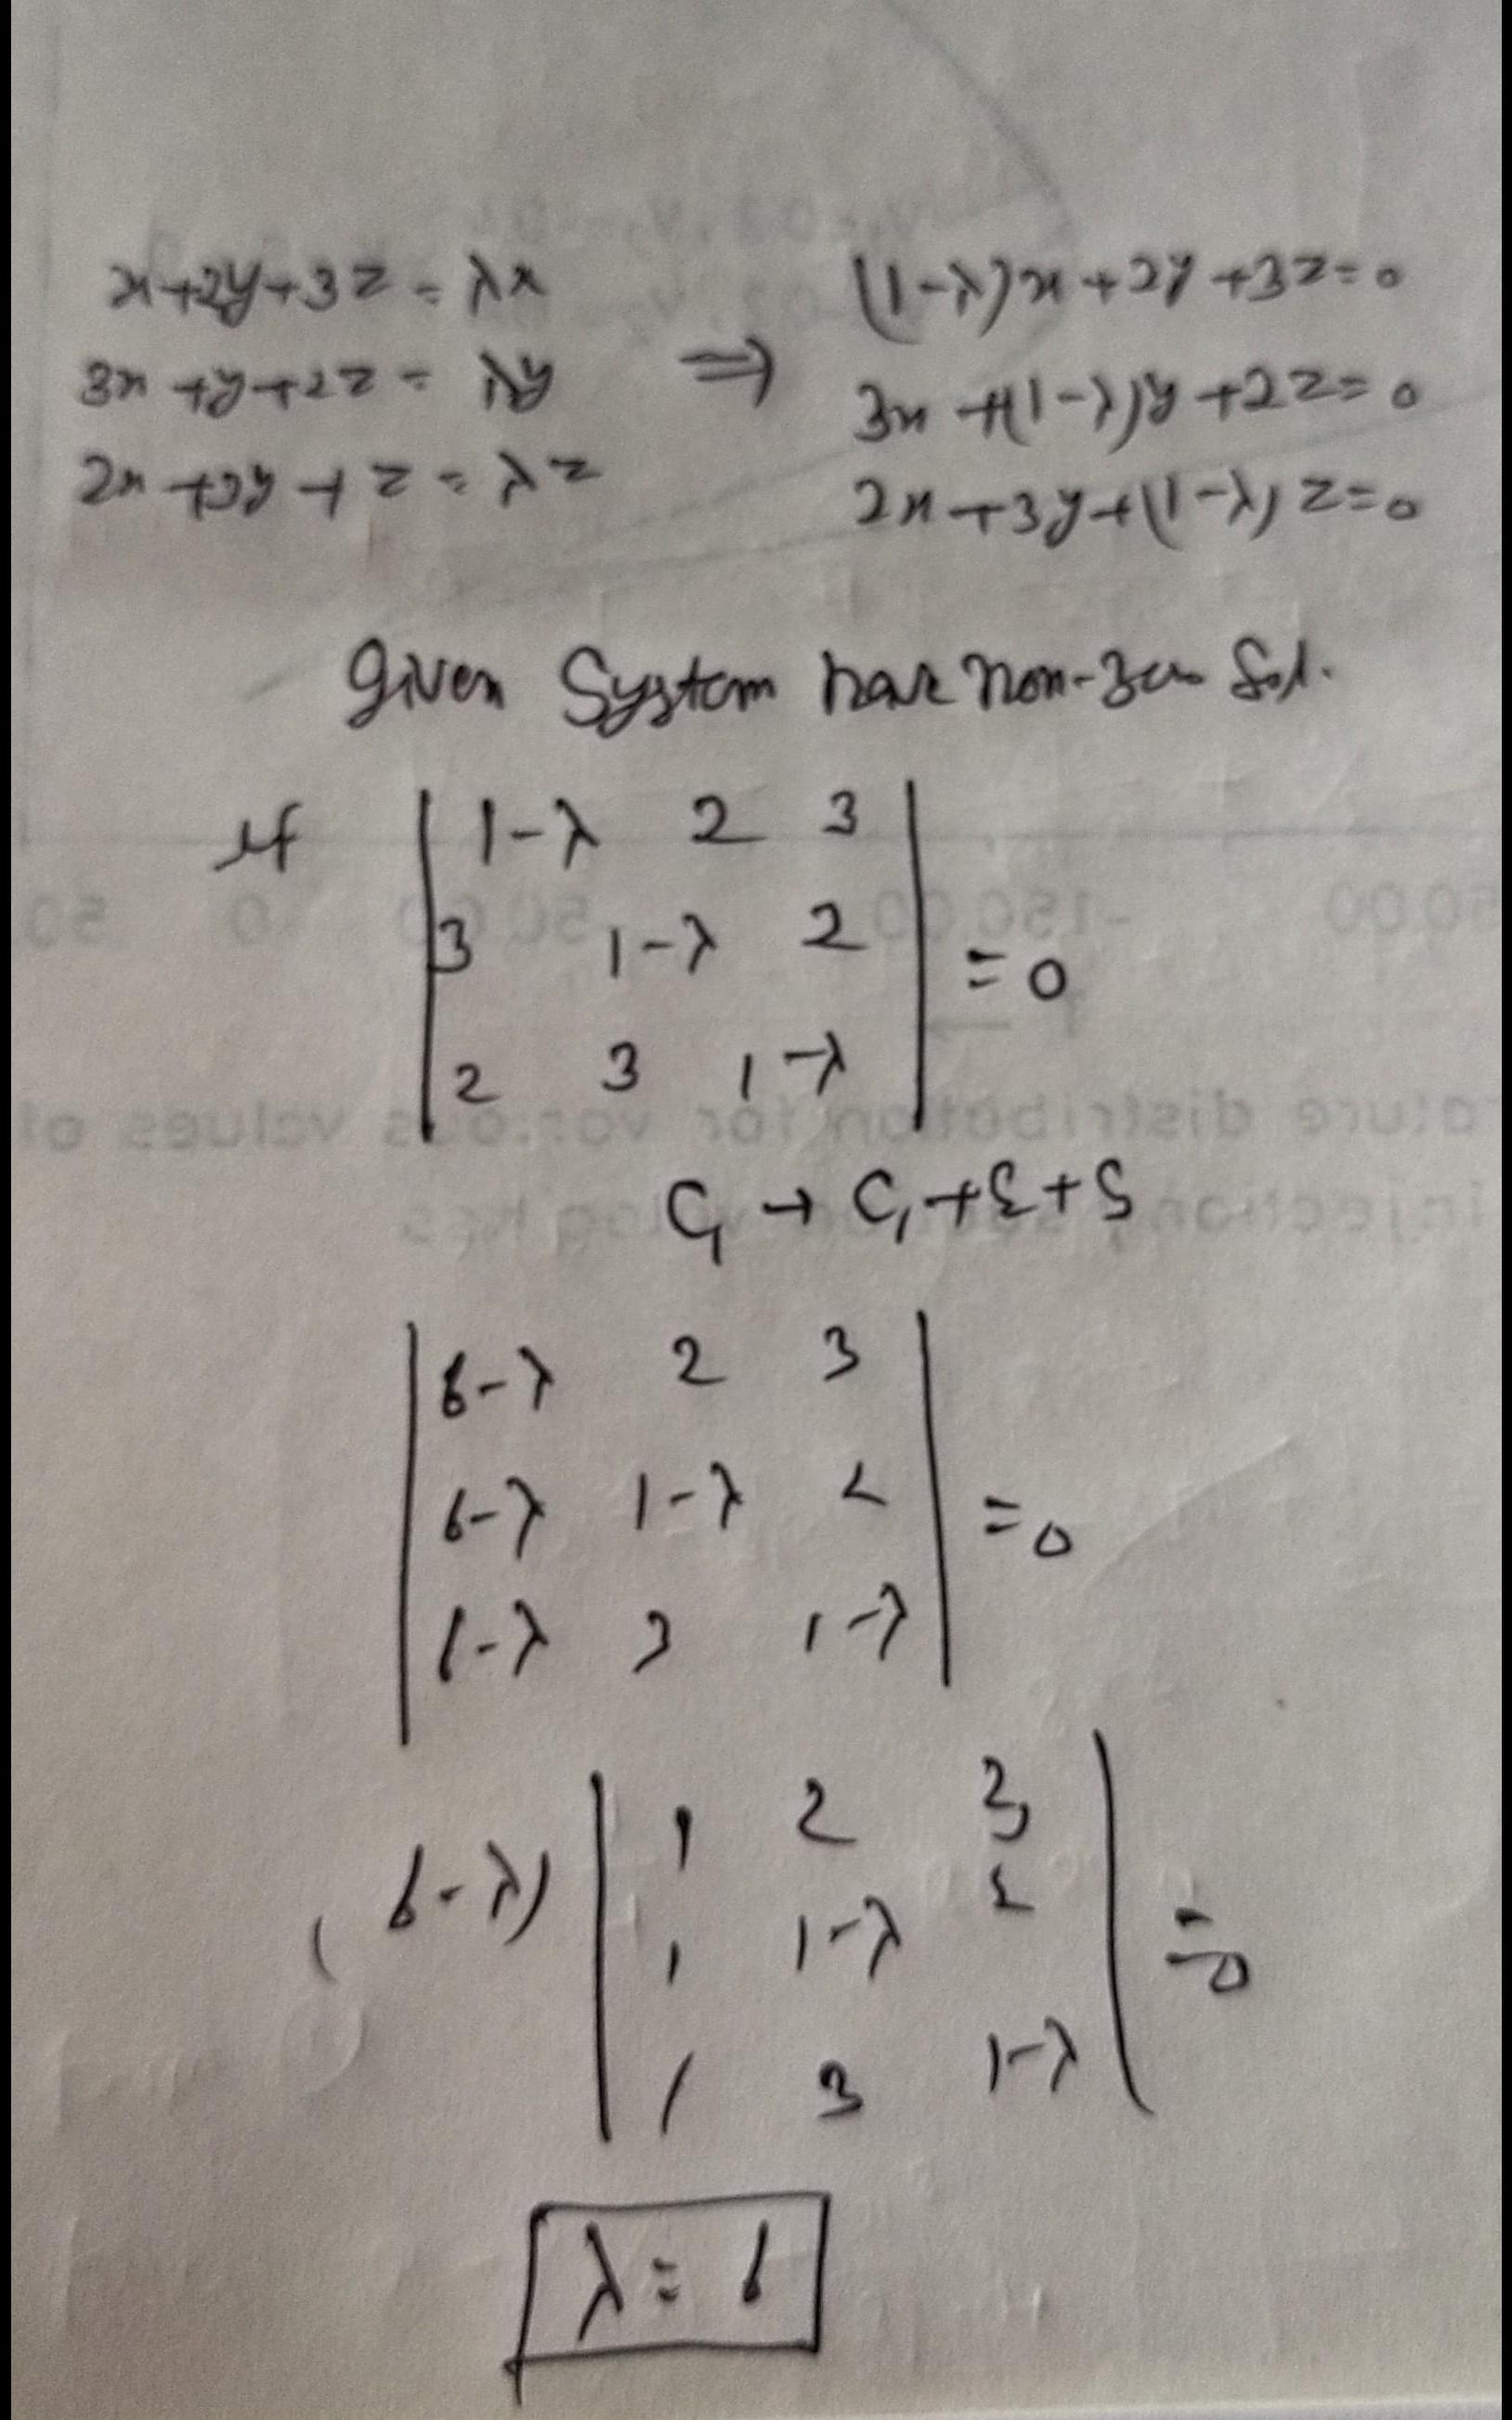 x+2y+3z = λx ⇒ (1-λ)x+2y+3z=0
3x+y+2z = λy 3x+(1-λ)y+2z=0
2x+3y+z = λz 2x+3y+(1-λ)z=0
Given System have non-zero Sol.
if | 1-λ 2 3 |
| 3 1-λ 2 | =0
| 2 3 1-λ |
C₁ → C₁+C₂+C₃
| 6-λ 2 3 |
| 6-λ 1-λ 2 | =0
| 6-λ 3 1-λ |
(6-λ) | 1 2 3 |
| 1 1-λ 2 | =0
| 1 3 1-λ |
λ = 6